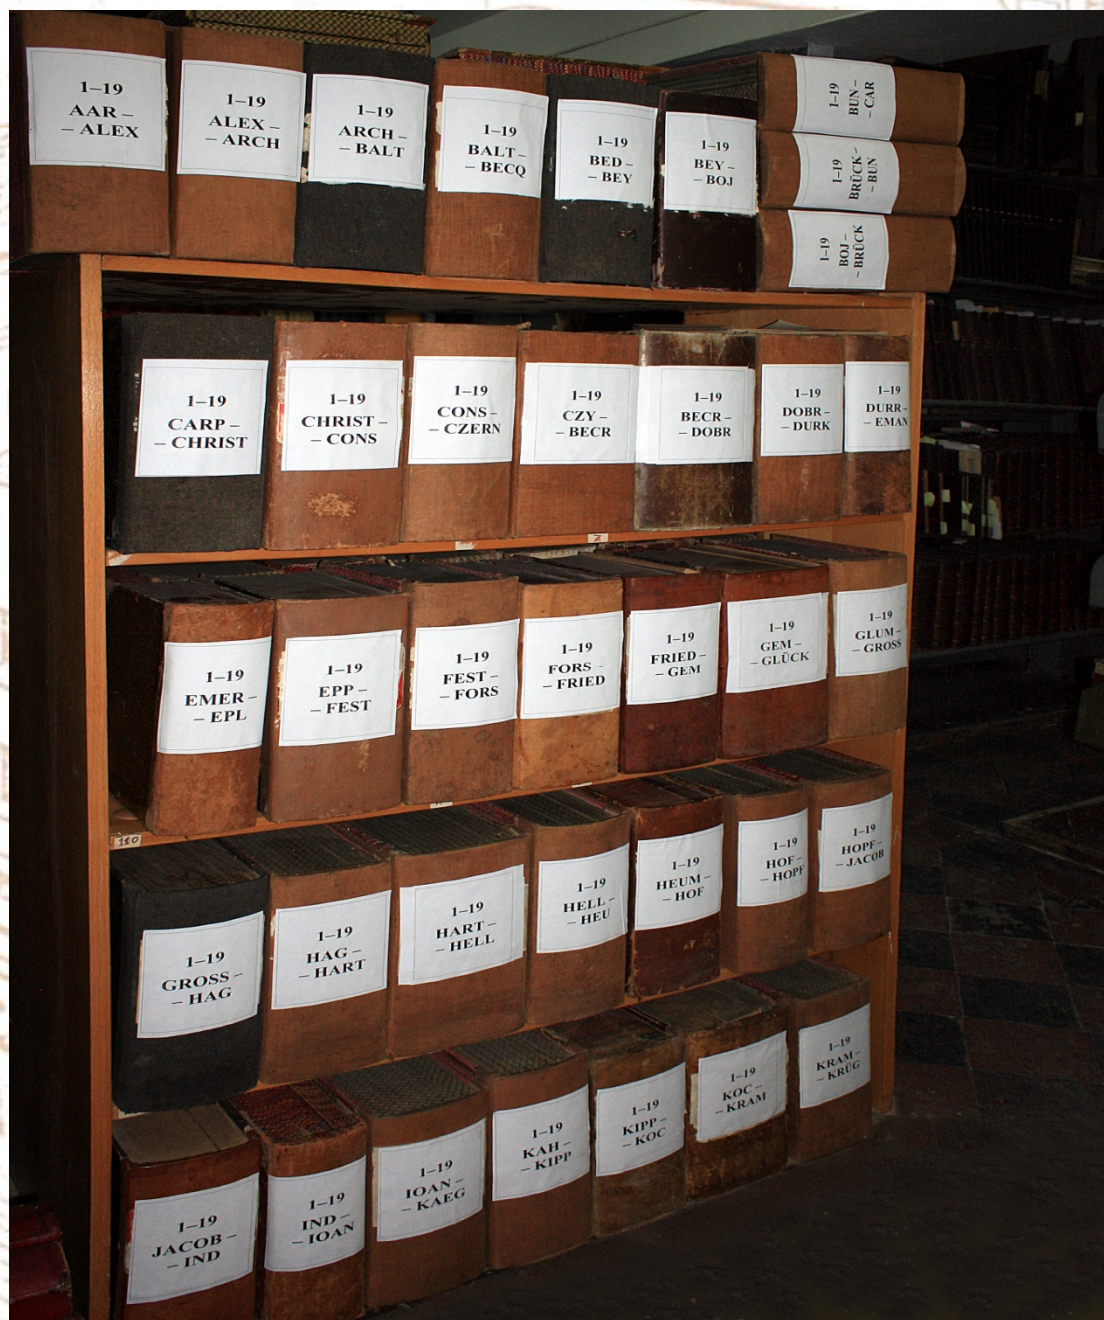 1–19
AAR –
– ALEX
1–19
ALEX –
– ARCH
1–19
ARCH –
– BALT
1–19
BALT –
– BECQ
1–19
BED –
– BEY
1–19
BEY –
– BOJ
1–19
BUN –
– CAR
1–19
BRÜCK –
– BUN
1–19
BOJ –
– BRÜCK
1–19
CARP –
– CHRIST
1–19
CHRIST –
– CONS
1–19
CONS –
– CZERN
1–19
CZY –
– BECR
1–19
BECR –
– DOBR
1–19
DOBR –
– DURK
1–19
DURR –
– EMAN
1–19
EMER –
– EPL
1–19
EPP –
– FEST
1–19
FEST –
– FORS
1–19
FORS –
– FRIED
1–19
FRIED –
– GEM
1–19
GEM –
– GLÜCK
1–19
GLUM –
– GROSS
110
1–19
GROSS –
– HAG
1–19
HAG –
– HART
1–19
HART –
– HELL
1–19
HELL –
– HEU
1–19
HEUM –
– HOF
1–19
HOF –
– HOPF
1–19
HOPF –
– JACOB
1–19
JACOB –
– IND
1–19
IND –
– IOAN
1–19
IOAN –
– KAEG
1–19
KAH –
– KIPP
1–19
KIPP –
– KOC
1–19
KOC –
– KRAM
1–19
KRAM –
– KRÜG